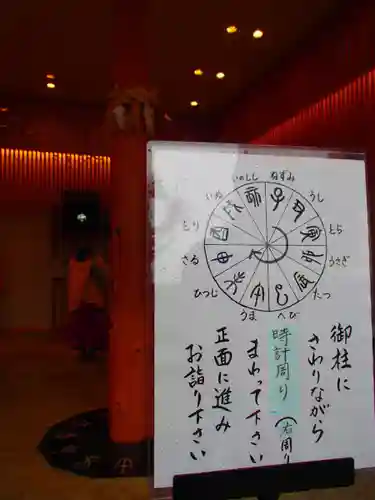 ねずみ
うし
とら
うさぎ
たつ
へび
うま
ひつじ
さる
とり
いぬ
いのしし
御柱に
さわりながら
時計周り(右周り)
まわって下さい
正面に進み
お詣り下さい